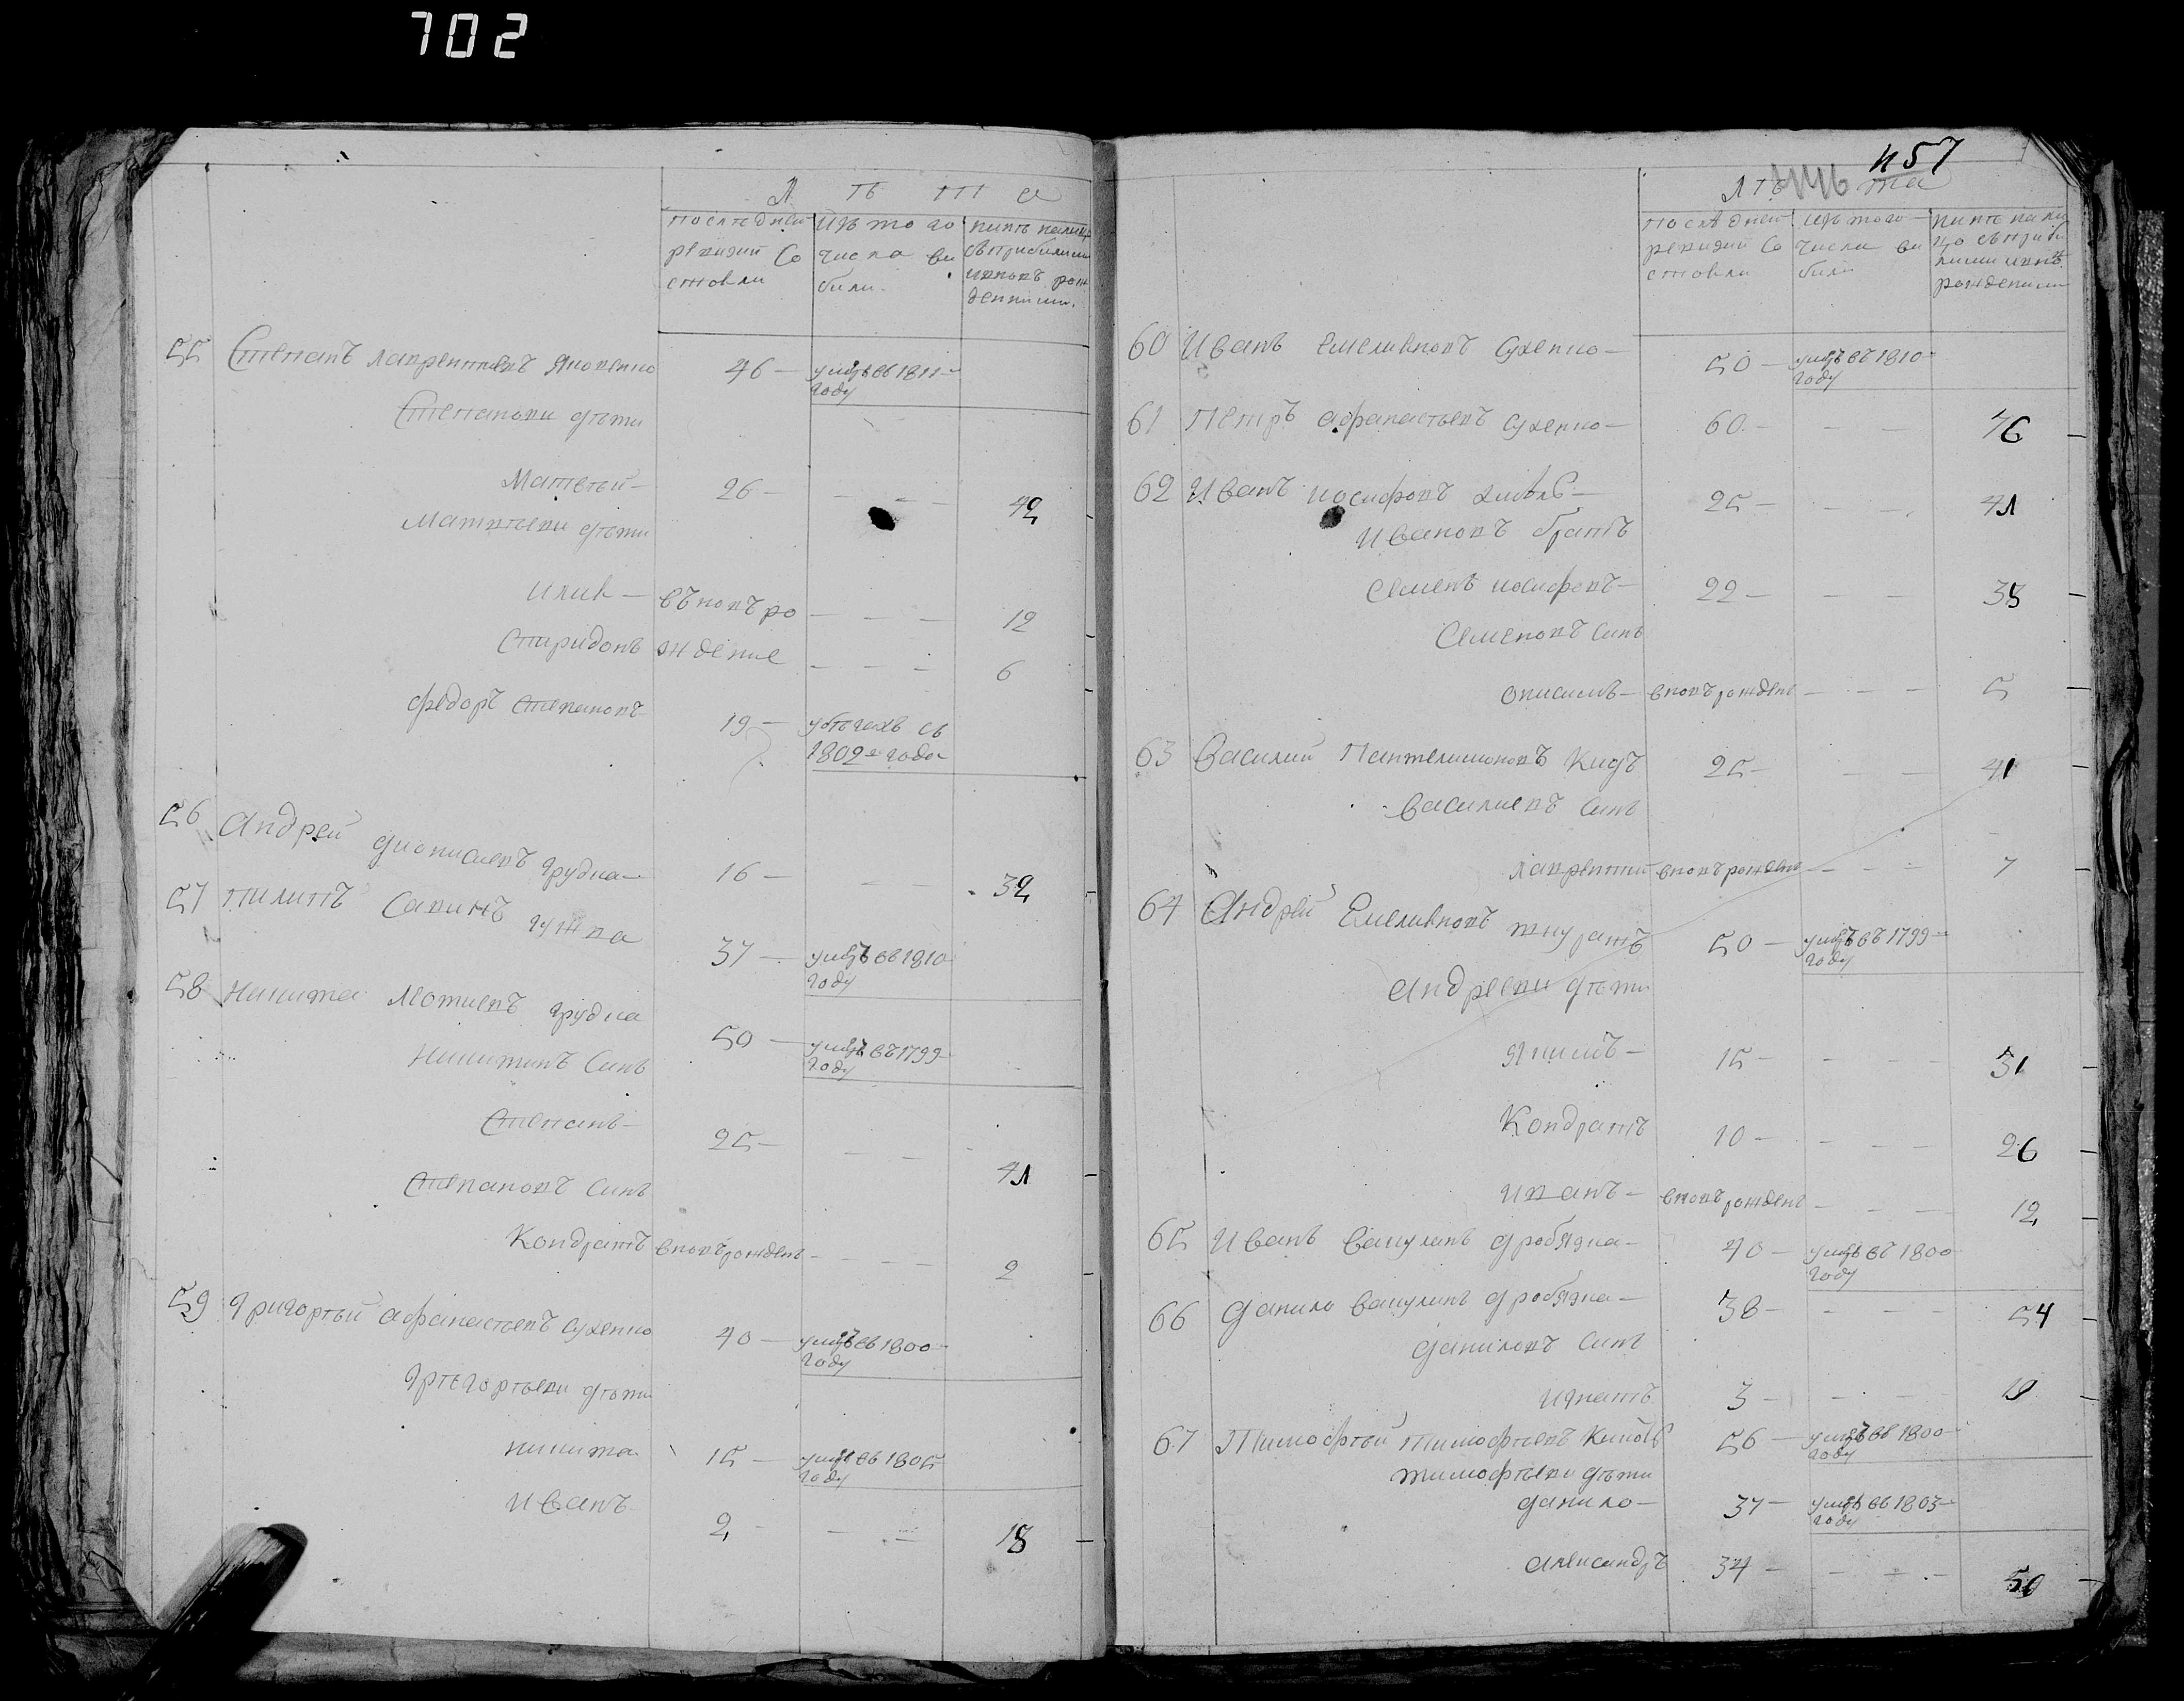 702
Л ѣ т а
последней изъ того нинѣ налицо
ревизии со числа ви съ прибилими
стояли били. и новъ рож
денними.
55 Степанъ Лаврентиевъ Яковенко 46 — умре въ 1811
году
Степанови дѣти
Матвѣй — 26 — — — — 42
Матвѣеви дѣти
Илия — въновъ ро — — — 12
Спиридонъ ждение — — — 6
Федоръ Степановъ 19 — в
1802 года
56 Андрей Дионисиевъ Грудка — 16 — — — 32
57 Пилипъ Савинъ Гужва 37 — умре въ 1810
году
58 Никита Мотиевъ Грудка 50 — умре въ 1799
году
Никитинъ синъ
Степанъ — 25 — — — — 41
Степановъ синъ
Кондратъ вновъ рожденъ — — — 2
59 Григорѣй Афанасѣевъ Сухенко 40 — умре въ 1800
году
Грѣгорѣеви дѣти
Никита 15 — умре въ 1805
году
Иванъ 2 — — — 18
457
Л ѣ та
последней изъ того нинѣ нали
ревизии со числа ви цо съ приби
стояли били лими и новъ
рожденими
60 Иванъ Емелияновъ Сухенко — 50 — умре въ 1810
году
61 Петръ Афанасѣевъ Сухенко — 60 — — — 76
62 Иванъ Иосифовъ — 25 — — — 41
Ивановъ братъ
Семенъ Иосифовъ — 22 — — — 38
Семеновъ синъ
Онисимъ — вновъ рожденъ — — — 5
63 Василий Пантелимоновъ 25 — — — 41
Василиевъ синъ
Лаврентий вновъ рожденъ — — — 7
64 Андрей Емелияновъ 50 — умре въ 1799
году
Андрееви дѣти
Якимъ — 15 — — — — 31
Кондратъ 10 — — — — 26
Иванъ — вновъ рожденъ — — — 12
65 Иванъ Вакуленъ Дробязка — 40 — умре въ 1800
году
66 Данило Вакуленъ Дробязка — 38 — — — 54
Даниловъ синъ
Игнатъ 3 — — — 19
67 Тимофѣй Тимофѣевъ 56 — умре въ 1800
году
Тимофѣеви дѣти
Данило — 37 — умре въ 1803
году
Александръ 34 — — — — 50